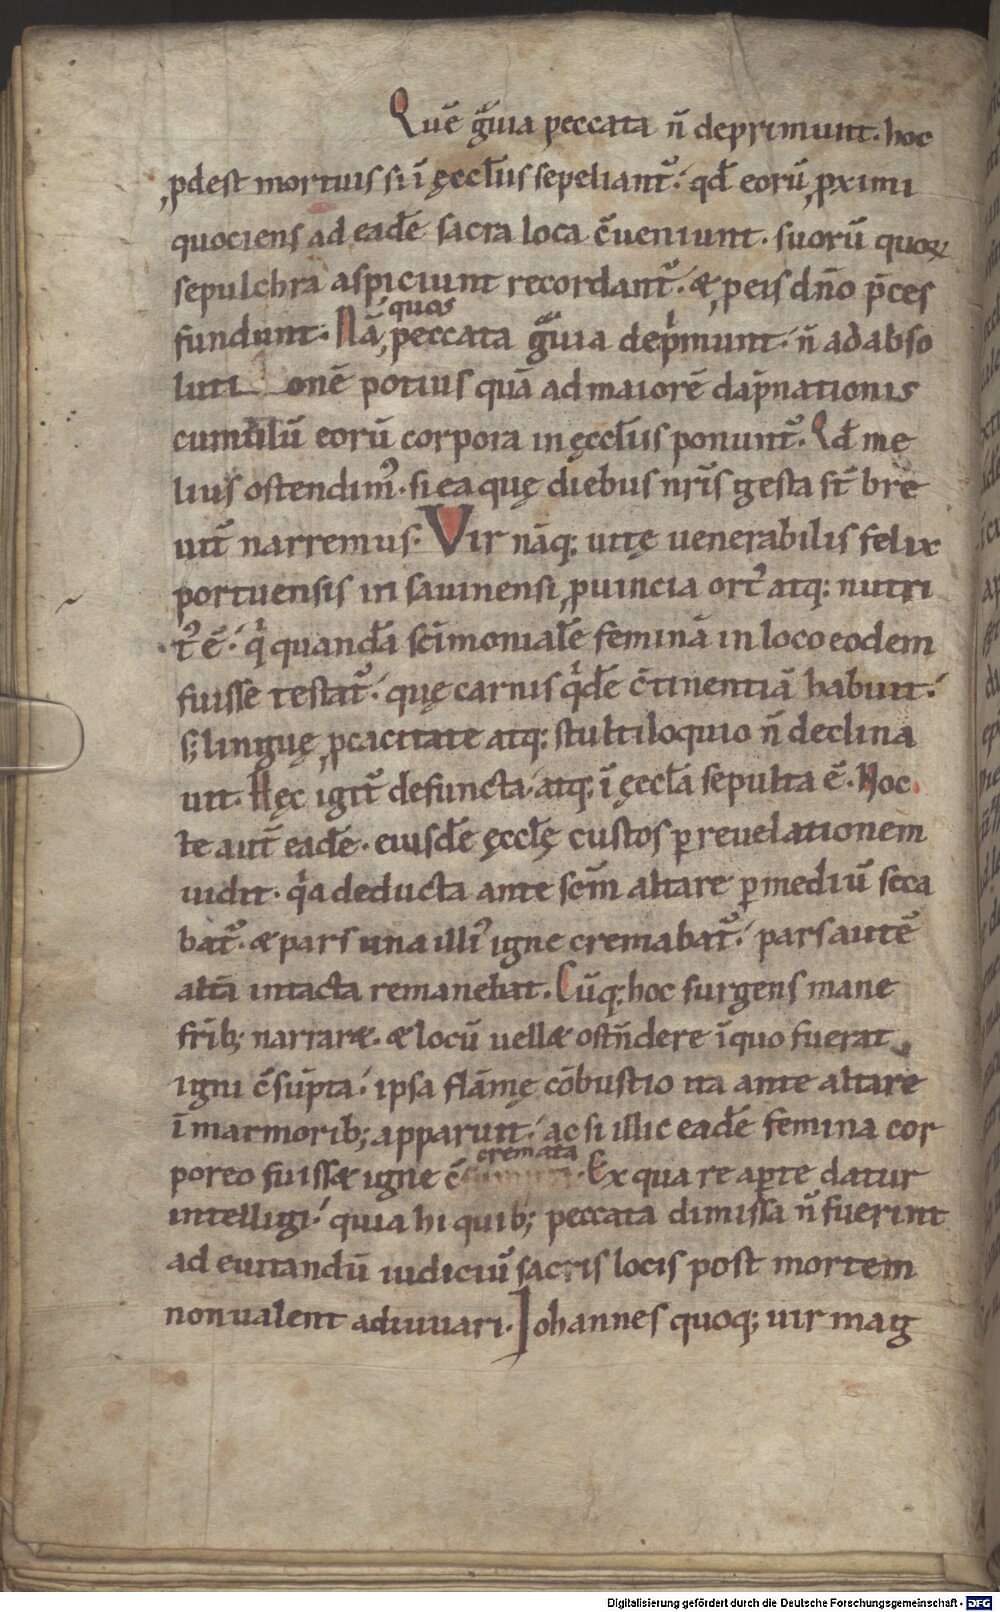 Quē g̃uia peccata n̄ deprimunt. hoc
ꝓdest mortuis si ī ęccłis sepeliant᷑. qđ eorū ꝓximi
quociens ad eadē sacra loca c̄ueniunt. suorū quoꝙ
sepulchra aspiciunt recordant᷑. & ꝑ eis dn̄o p̄ces
quos
fundunt. Nā, peccata g̃uia dep̍munt. n̄ ad abso
luti onē potius quā ad maiorē dāpnationis
cumulū eorū corpora in ęccłis ponunt᷑. Qđ me
lius ostendim᷒. si ea quę diebus nr̄is gesta st̄ bre
uit̄ narremus. Vir nāq; uitę uenerabilis felix
portuensis in sauinensi ꝓuincia ort᷒ atq; nutri
t᷒ ē. q̍ quandā sc̄imonialē feminā in loco eodem
fuisse testat᷑. quę carnis q̍dē c̄tinentiā habuit.
s; linguę ꝓcacitate atq; stultiloquio n̄ declina
uit. Hęc igit᷑ defuncta. atq; ī ęccła sepulta ē. Noc
te aut̄ eadē. eiusdē ęccłę custos ꝑ reuelationem
uidit. q̍a deducta ante scm̄ altare ꝑ mediū seca
bat᷑. & pars una illi᷒ igne cremabat᷑. pars autē
altā intacta remanebat. Cūq; hoc surgens mane
fr̄ib; narrar&. & locū uell& ostn̄dere īquo fuerat
igni c̄sūpta. ipsa flāmę cōbustio ita ante altare
ī marmorib; apparuit. ac si illic eadē femina cor
cremata
poreo fuiss& igne c̄ . Ex qua re aꝑte datur
intelligi. quia hi quib; peccata dimissa n̄ fuerint
ad euitandū iudiciū sacris locis post mortem
non ualent adiuuari. Iohannes quoq; uir mag
Digitalisierung gefördert durch die Deutsche Forschungsgemeinschaft - DFG